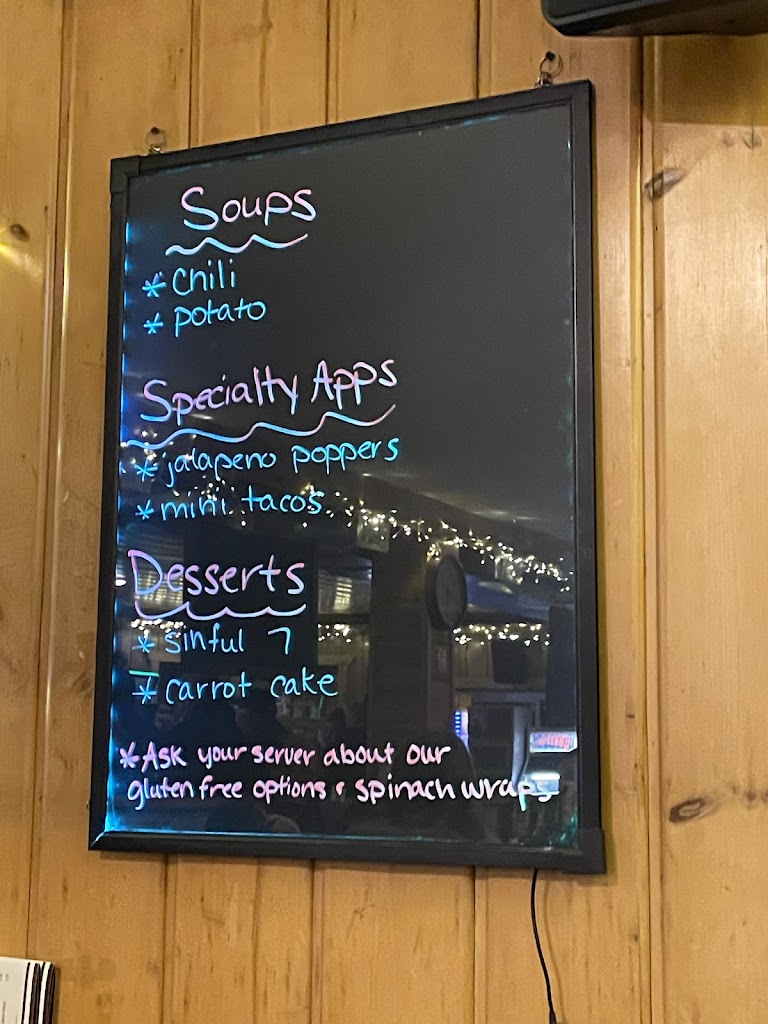 Soups
* Chili
* potato
Specialty Apps
* jalapeno poppers
* mini tacos
Desserts
* sinful 7
* carrot cake
* Ask your server about our
gluten free options & spinach wraps